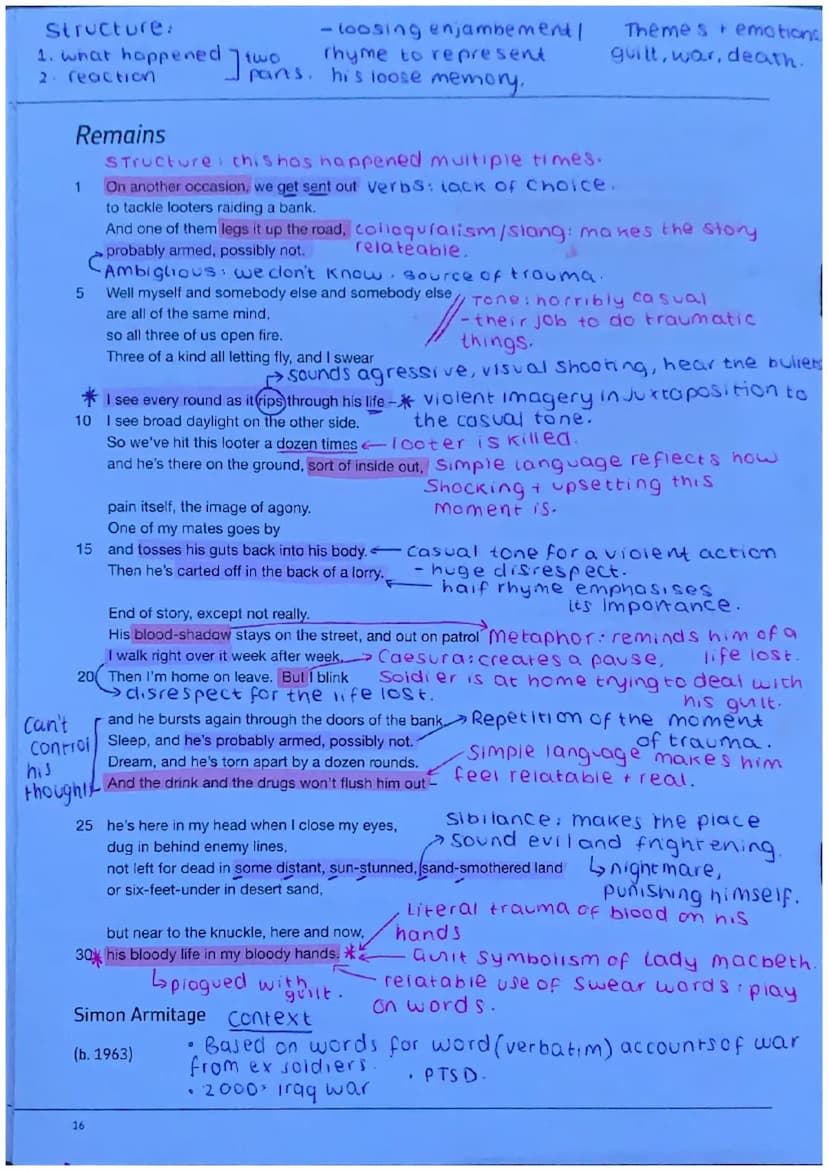 Structure:
1. what happened ] two
2. reaction ] parts.
- loosing enjambement /
rhyme to represent
his loose memory.
Themes + emotions
guilt, war, death.
Remains
Structure: this has happened multiple times.
1 On another occasion, we get sent out verbs: lack of choice.
to tackle looters raiding a bank.
And one of them legs it up the road, colloquralism/slang: makes the story
probably armed, possibly not. relateable.
Ambiglious: we don't know. source of trauma.
5 Well myself and somebody else and somebody else Tone: horribly casual
are all of the same mind, - their job to do traumatic
so all three of us open fire. things.
Three of a kind all letting fly, and I swear
→ sounds agressive, visual shooting, hear the bullets
* I see every round as it rips through his life – * violent imagery in juxtaposition to
10 I see broad daylight on the other side. the casual tone.
So we've hit this looter a dozen times ← looter is killed.
and he's there on the ground, sort of inside out, simple language reflects how
shocking + upsetting this
pain itself, the image of agony. moment is.
One of my mates goes by
15 and tosses his guts back into his body. ← casual tone for a violent action
Then he's carted off in the back of a lorry. - huge disrespect.
← half rhyme emphasises
its importance.
End of story, except not really.
His blood-shadow stays on the street, and out on patrol Metaphor: reminds him of a
I walk right over it week after week. → Caesura: creates a pause, life lost.
20 Then I'm home on leave. But I blink Soldier is at home trying to deal with
→ disrespect for the life lost. his guilt.
and he bursts again through the doors of the bank. → Repetition of the moment
Sleep, and he's probably armed, possibly not. of trauma.
Dream, and he's torn apart by a dozen rounds. simple language makes him
And the drink and the drugs won't flush him out – feel relatable + real.
can't
control
his
thought
25 he's here in my head when I close my eyes, Sibilance: makes the place
dug in behind enemy lines, → sound evil and frightening.
not left for dead in some distant, sun-stunned, sand-smothered land ↳ nightmare,
or six-feet-under in desert sand, punishing himself.
Literal trauma of blood on his
but near to the knuckle, here and now, hands
30 * his bloody life in my bloody hands. * ← Guilt symbolism of lady macbeth.
↳ plagued with guilt. relatable use of swear words: play
on words.
Simon Armitage context
(b. 1963) • Based on words for word (verbatim) accounts of war
from ex soldiers. • PTSD.
• 2000s Iraq war
16